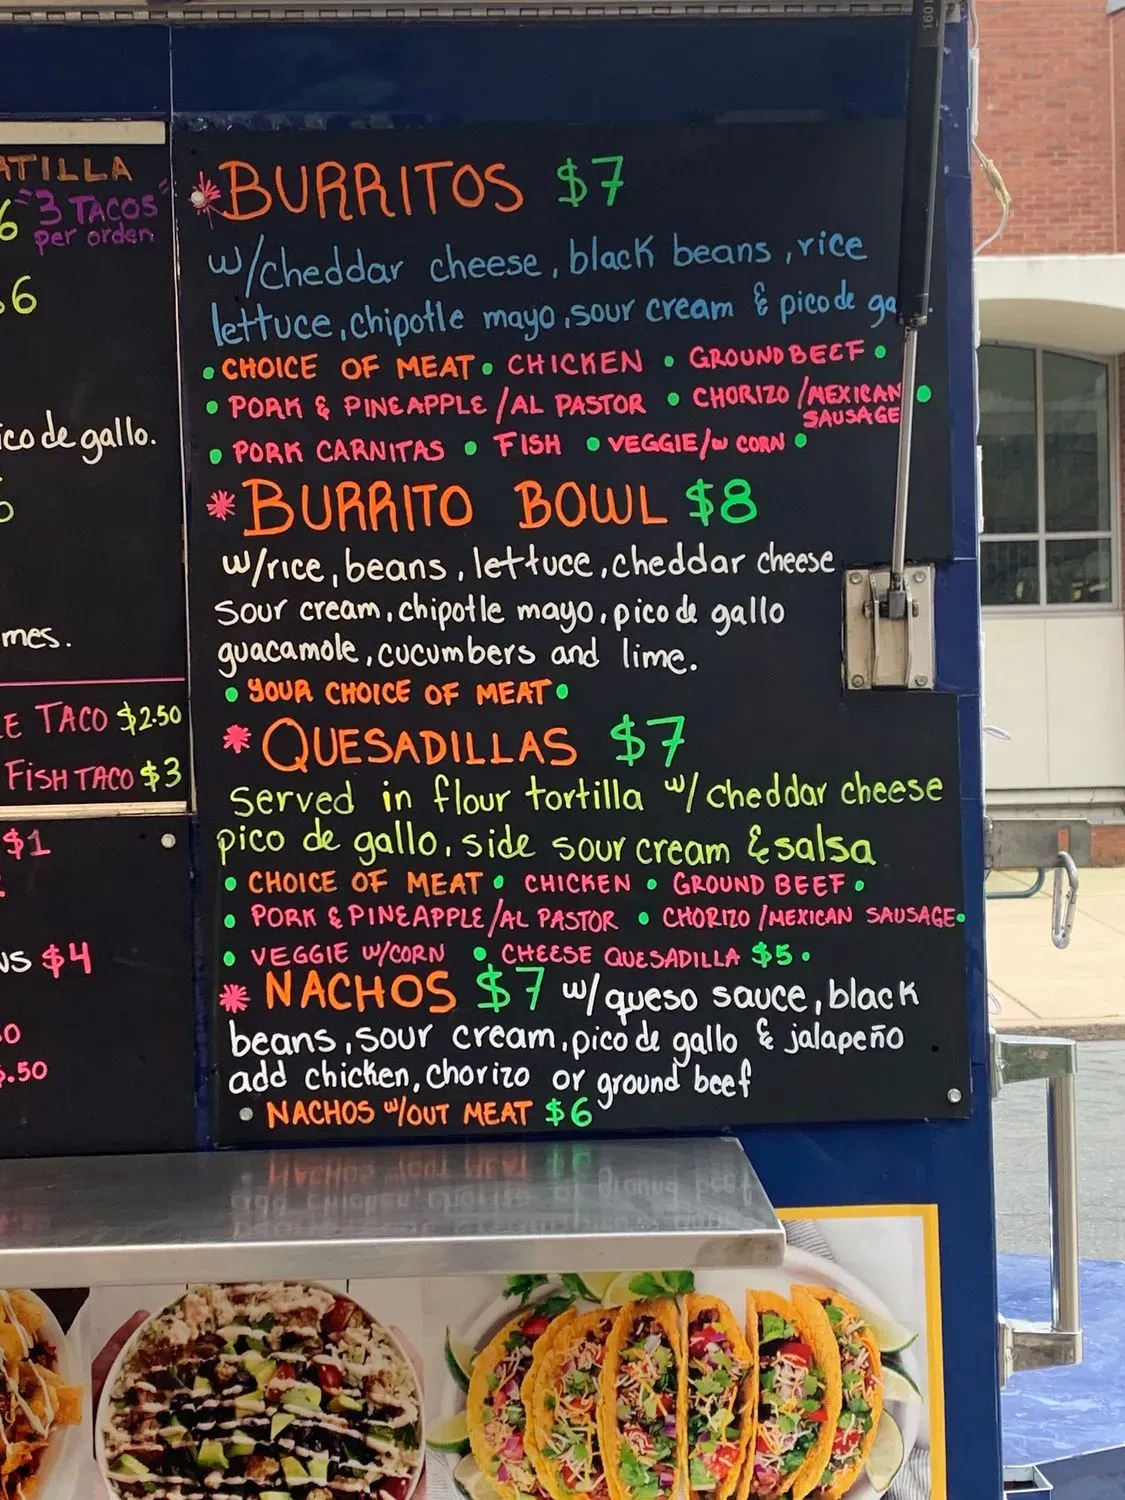 RTILLA
6 "3 TACOS"
per orden
$6
ico de gallo.
mes.
E TACO $2.50
FISH TACO $3
$1
WS $4
.50
*BURRITOS $7
w/cheddar cheese, black beans, rice
lettuce, chipotle mayo, sour cream & pico de ga
• CHOICE OF MEAT • CHICKEN • GROUND BEEF •
• PORK & PINEAPPLE/AL PASTOR • CHORIZO/MEXICAN •
SAUSAGE
• PORK CARNITAS • FISH • VEGGIE/W CORN •
*BURRITO BOWL $8
w/rice, beans, lettuce, cheddar cheese
sour cream, chipotle mayo, pico de gallo
guacamole, cucumbers and lime.
• YOUR CHOICE OF MEAT •
* QUESADILLAS $7
served in flour tortilla w/cheddar cheese
pico de gallo, side sour cream & salsa
• CHOICE OF MEAT • CHICKEN • GROUND BEEF •
• PORK & PINEAPPLE/AL PASTOR • CHORIZO/MEXICAN SAUSAGE •
• VEGGIE W/CORN • CHEESE QUESADILLA $5 •
* NACHOS $7 w/queso sauce, black
beans, sour cream, pico de gallo & jalapeño
add chicken, chorizo or ground beef
NACHOS W/OUT MEAT $6